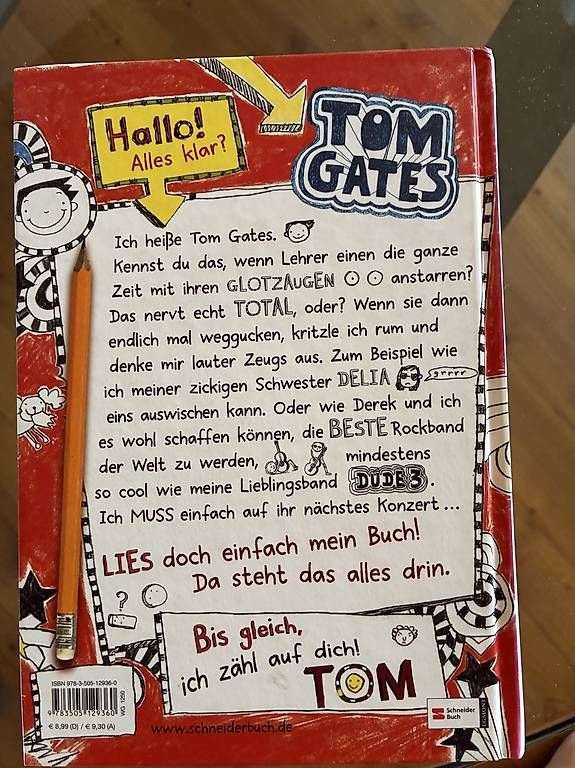 Hallo!
Alles klar?
TOM
GATES
Ich heiße Tom Gates.
Kennst du das, wenn Lehrer einen die ganze
Zeit mit ihren GLOTZAUGEN anstarren?
Das nervt echt TOTAL, oder? Wenn sie dann
endlich mal weggucken, kritzle ich rum und
denke mir lauter Zeugs aus. Zum Beispiel wie
ich meiner zickigen Schwester DELIA grrrr
eins auswischen kann. Oder wie Derek und ich
es wohl schaffen können, die BESTE Rockband
der Welt zu werden, mindestens
so cool wie meine Lieblingsband DUDE 3.
Ich MUSS einfach auf ihr nächstes Konzert ...
LIEs doch einfach mein Buch!
Da steht das alles drin.
?
Bis gleich,
ich zähl auf dich!
TOM
ISBN 978-3-505-12936-0
WG 1250
9 783505 129360
€ 8,99 (D) / € 9,30 (A)
www.schneiderbuch.de
Schneider
Buch
EGMONT